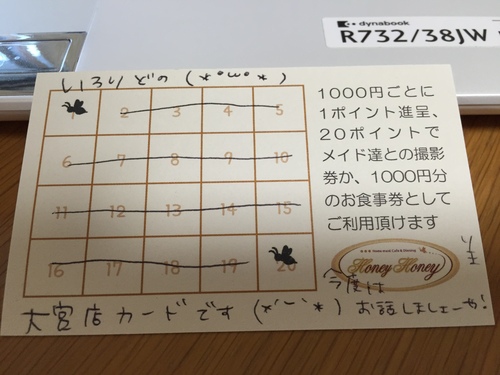 dynabook
R732/38JW
いろりどの (*°ω°*)
1 2 3 4 5
6 7 8 9 10
11 12 13 14 15
16 17 18 19 20
1000円ごとに
1ポイント進呈、
20ポイントで
メイド達との撮影
券か、1000円分
のお食事券として
ご利用頂けます
Honey Honey
今度は
大宮店カードです (*´ｰ`*) お話しましょーや!